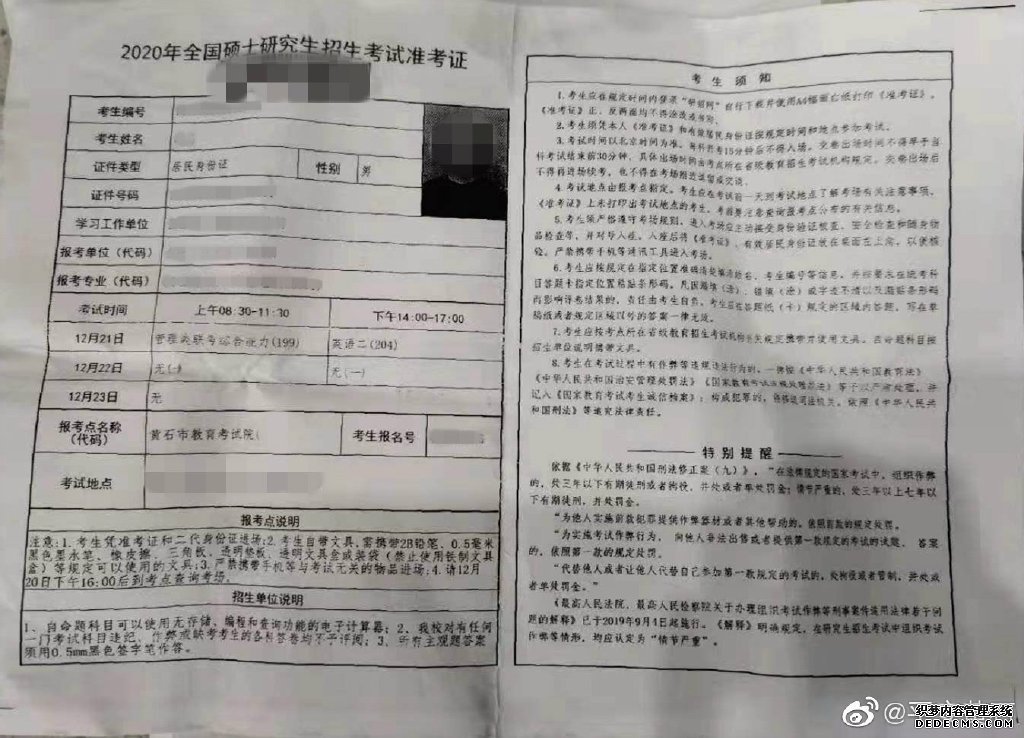 2020年全国硕士研究生招生考试准考证
考生编号
考生姓名
证件类型 居民身份证 性别 男
证件号码
学习工作单位
报考单位（代码）
报考专业（代码）
考试时间 上午08:30-11:30 下午14:00-17:00
12月21日 管理类联考综合能力(199) 英语二(204)
12月22日 无(一) 无(一)
12月23日 无
报考点名称（代码） 黄石市教育考试院( 考生报名号
考试地点
报考点说明
注意:1.考生凭准考证和二代身份证进场;2.考生自带文具,需携带2B铅笔、0.5毫米
黑色墨水笔、橡皮擦、三角板、透明垫板、透明文具盒或装袋（禁止使用铁制文具
盒）等规定可以使用的文具;3.严禁携带手机等与考试无关的物品进场;4.请12月
20日下午16:00后到考点查询考场。
招生单位说明
1、自命题科目可以使用无存储、编程和查询功能的电子计算器；2、我校对有任何
一门考试科目违纪、作弊或缺考考生的各科答卷均不予评阅；3、所有主观题答案
须用0.5mm黑色签字笔作答。
考生须知
1.考生应在规定时间内登录“研招网”自行下载并使用A4幅面白纸打印《准考证》，
《准考证》正、反两面均不得涂改或书写。
2.考生须凭本人《准考证》和有效居民身份证按规定时间和地点参加考试。
3.考试时间以北京时间为准。每科开考15分钟后不得入场。交卷出场时间不得早于当
科考试结束前30分钟，具体出场时间由考点所在省级教育招生考试机构规定。交卷出场后
不得再进场续考，也不得在考场附近逗留或交谈。
4.考试地点由报考点指定。考生应在考试前一天到考试地点了解考场有关注意事项，
《准考证》上未打印出考试地点的考生，考前要注意查询报考点公布的有关信息。
5.考生须严格遵守考场规则，进入考场应主动接受身份验证核查、安全检查和随身物
品检查等，并对号入座。入座后将《准考证》、有效居民身份证放在桌面左上角，以便核
验。严禁携带手机等通讯工具进入考场。
6.考生应按规定在指定位置准确清楚填涂姓名、考生编号等信息，并按要求在统考科
目答题卡指定位置粘贴条形码。凡因漏填（涂）、错填（涂）或字迹不清以及漏贴条形码
而影响评卷结果的，责任由考生自负。考生应在答题纸（卡）规定的区域内答题，写在草
稿纸或者规定区域以外的答案一律无效。
7.考生应按考点所在省级教育招生考试机构有关规定携带并使用文具。自命题科目按
招生单位说明携带文具。
8.考生在考试过程中有作弊等违规违法行为的，一律按《中华人民共和国教育法》
《中华人民共和国治安管理处罚法》《国家教育考试违规处理办法》等予以严肃处理，并
记入《国家教育考试考生诚信档案》；构成犯罪的，由移送司法机关，依照《中华人民共
和国刑法》等追究法律责任。
特别提醒
依据《中华人民共和国刑法修正案（九）》，“在法律规定的国家考试中，组织作弊
的，处三年以下有期徒刑或者拘役，并处或者单处罚金；情节严重的，处三年以上七年以
下有期徒刑，并处罚金。
“为他人实施前款犯罪提供作弊器材或者其他帮助的，依照前款的规定处罚。
“为实施考试作弊行为，向他人非法出售或者提供第一款规定的考试的试题、答案
的，依照第一款的规定处罚。
“代替他人或者让他人代替自己参加第一款规定的考试的，处拘役或者管制，并处或
者单处罚金。”
《最高人民法院、最高人民检察院关于办理组织考试作弊等刑事案件适用法律若干问
题的解释》已于2019年9月4日起施行。《解释》明确规定，在研究生招生考试中组织考试
作弊等情形，均应认定为“情节严重”。
织梦内容管理系统
DEDECMS.COM